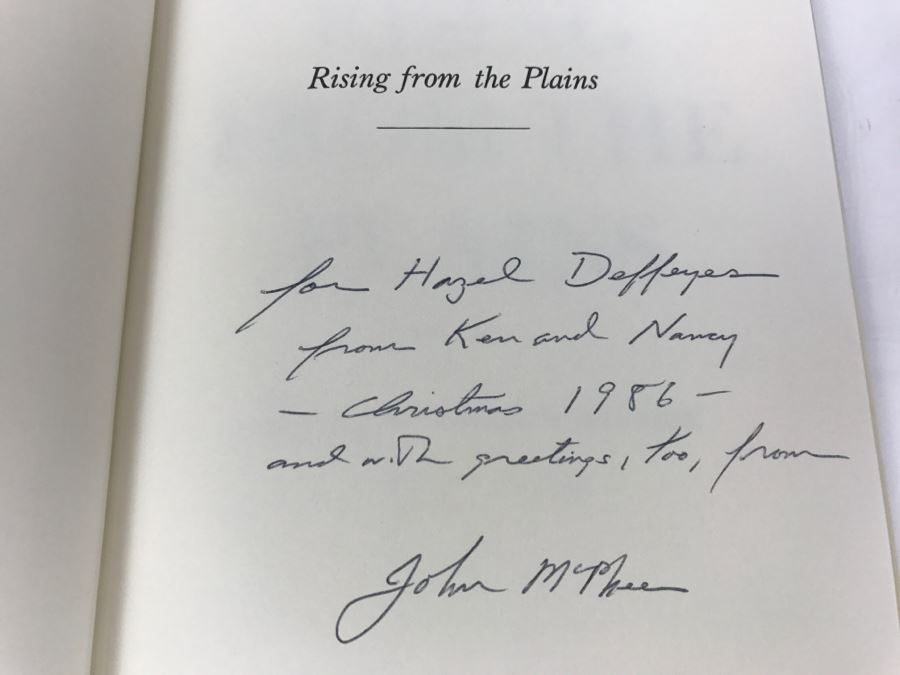 Rising from the Plains
for Hazel Deffeyes
from Ken and Nancy
— Christmas 1986 —
and with greetings, too, from
John McPhee